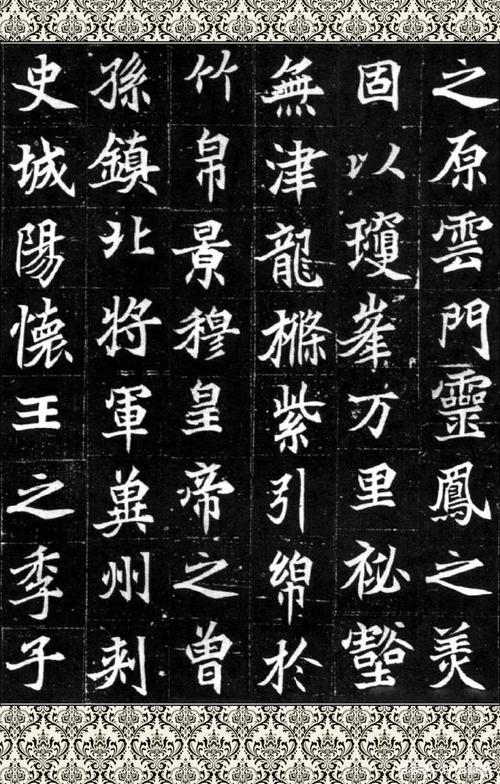 之原雲門靈鳳之羙
固以瓊峯万里祕壑
無津龍樤紫引綿於
竹帛景穆皇帝之曾
孫鎮北将軍冀州刾
史城陽懷王之季子